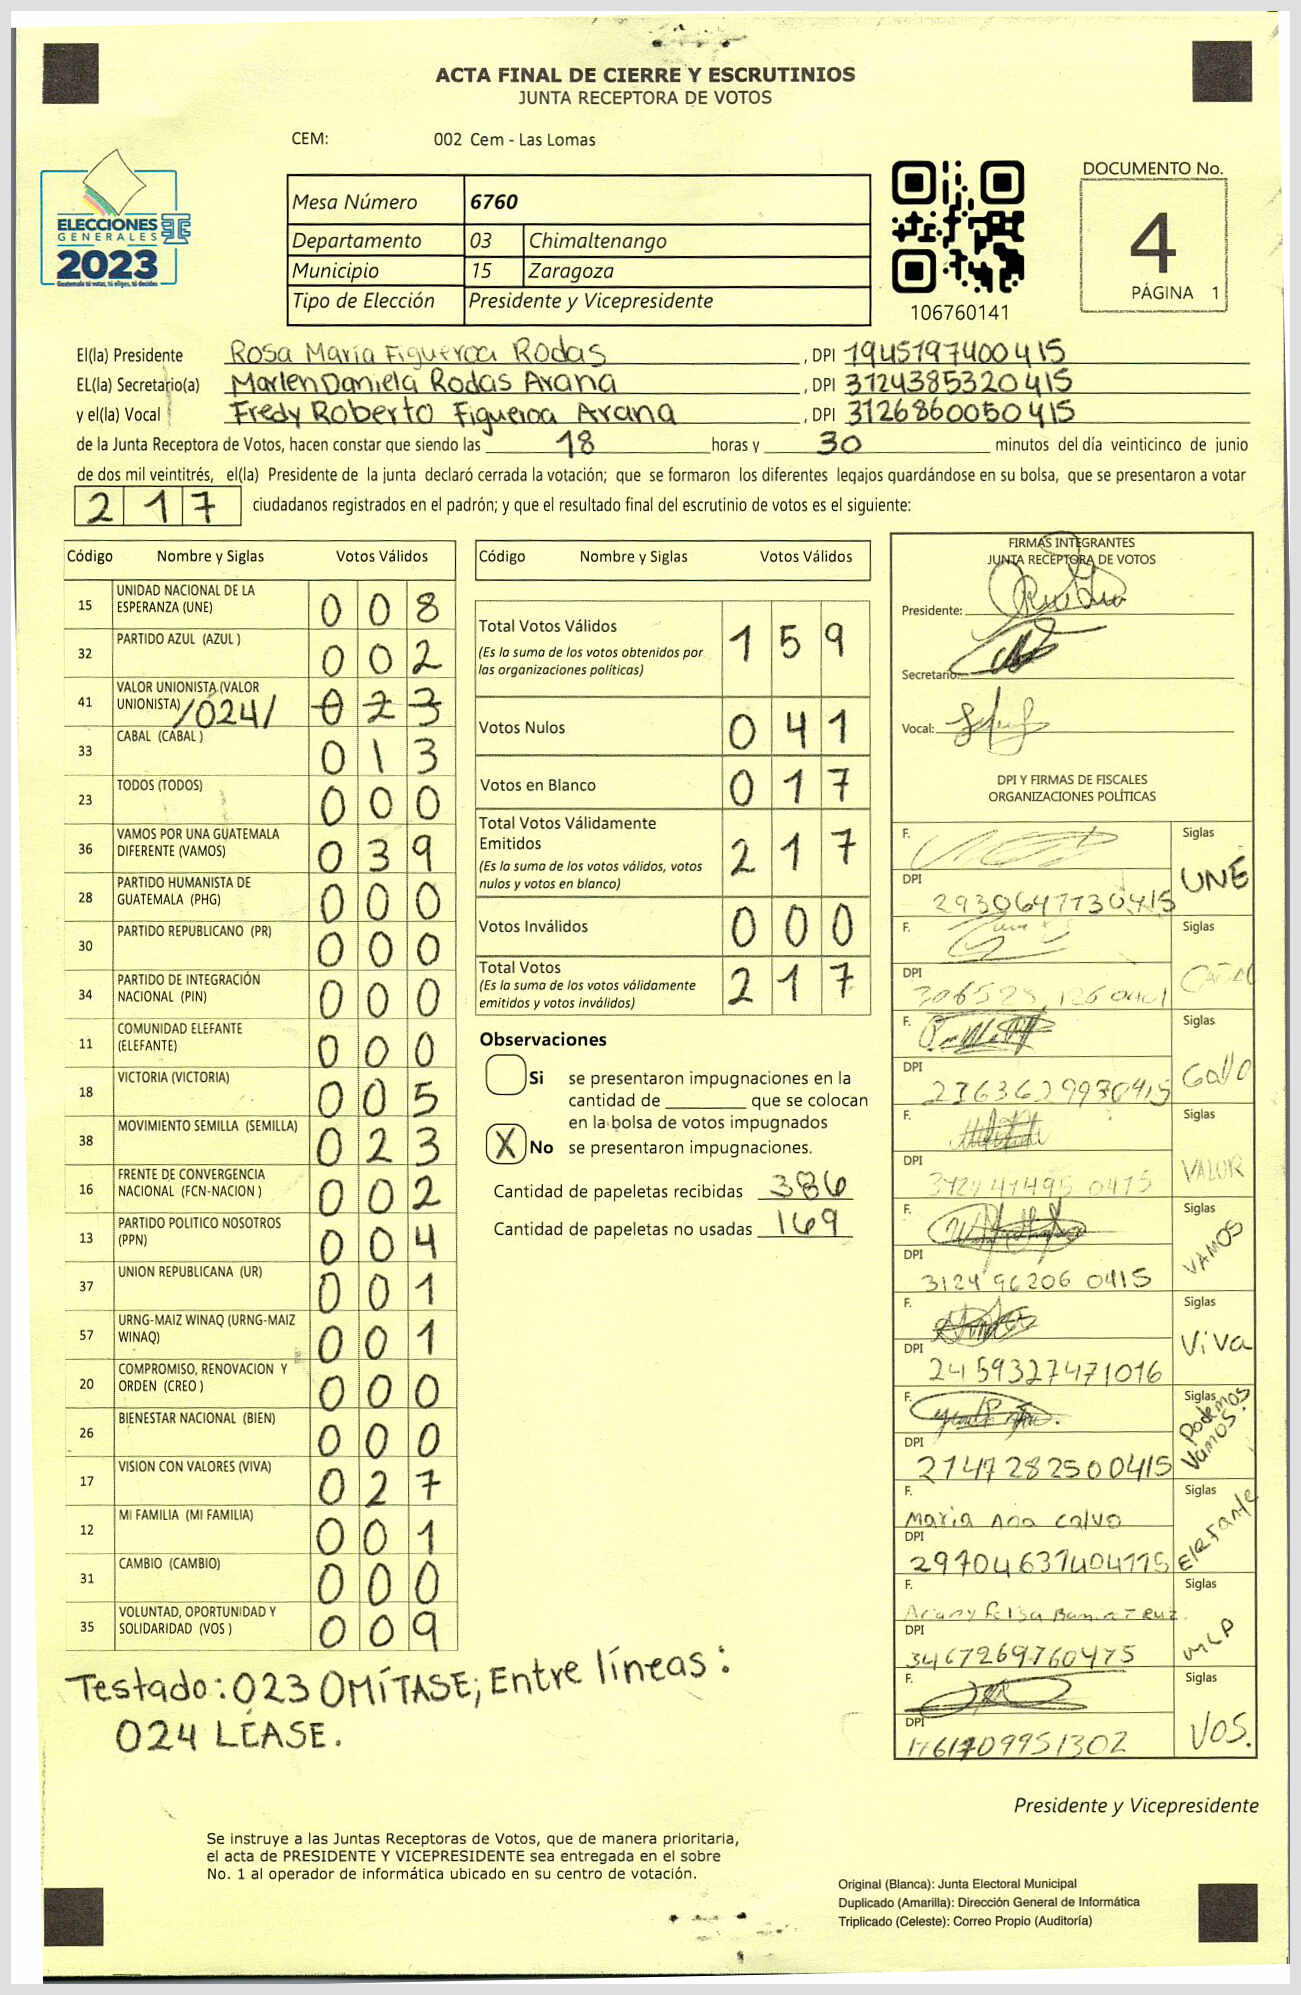 ACTA FINAL DE CIERRE Y ESCRUTINIOS
JUNTA RECEPTORA DE VOTOS
CEM: 002 Cem - Las Lomas
ELECCIONES
GENERALES
2023
Guatemala tú votas, tú eliges, tú decides
Mesa Número 6760
Departamento 03 Chimaltenango
Municipio 15 Zaragoza
Tipo de Elección Presidente y Vicepresidente
106760141
DOCUMENTO No.
4
PÁGINA 1
El(la) Presidente Rosa María Figueroa Rodas, DPI 1945197400415
EL(la) Secretario(a) Marlen Daniela Rodas Arana, DPI 3124385320415
y el(la) Vocal Fredy Roberto Figueroa Arana, DPI 3126860050415
de la Junta Receptora de Votos, hacen constar que siendo las 18 horas y 30 minutos del día veinticinco de junio
de dos mil veintitrés, el(la) Presidente de la junta declaró cerrada la votación; que se formaron los diferentes legajos guardándose en su bolsa, que se presentaron a votar
217 ciudadanos registrados en el padrón; y que el resultado final del escrutinio de votos es el siguiente:
Código Nombre y Siglas Votos Válidos
15 UNIDAD NACIONAL DE LA ESPERANZA (UNE) 008
32 PARTIDO AZUL (AZUL ) 002
41 VALOR UNIONISTA (VALOR UNIONISTA) /024/ 023
33 CABAL (CABAL ) 013
23 TODOS (TODOS) 000
36 VAMOS POR UNA GUATEMALA DIFERENTE (VAMOS) 039
28 PARTIDO HUMANISTA DE GUATEMALA (PHG) 000
30 PARTIDO REPUBLICANO (PR) 000
34 PARTIDO DE INTEGRACIÓN NACIONAL (PIN) 000
11 COMUNIDAD ELEFANTE (ELEFANTE) 000
18 VICTORIA (VICTORIA) 005
38 MOVIMIENTO SEMILLA (SEMILLA) 023
16 FRENTE DE CONVERGENCIA NACIONAL (FCN-NACION ) 002
13 PARTIDO POLITICO NOSOTROS (PPN) 004
37 UNION REPUBLICANA (UR) 001
57 URNG-MAIZ WINAQ (URNG-MAIZ WINAQ) 001
20 COMPROMISO, RENOVACION Y ORDEN (CREO ) 000
26 BIENESTAR NACIONAL (BIEN) 000
17 VISION CON VALORES (VIVA) 027
12 MI FAMILIA (MI FAMILIA) 001
31 CAMBIO (CAMBIO) 000
35 VOLUNTAD, OPORTUNIDAD Y SOLIDARIDAD (VOS ) 009
Testado: 023 OMÍTASE; Entre líneas:
024 LÉASE.
Código Nombre y Siglas Votos Válidos
Total Votos Válidos 159
(Es la suma de los votos obtenidos por
las organizaciones políticas)
Votos Nulos 041
Votos en Blanco 017
Total Votos Válidamente
Emitidos 217
(Es la suma de los votos válidos, votos
nulos y votos en blanco)
Votos Inválidos 000
Total Votos 217
(Es la suma de los votos válidamente
emitidos y votos inválidos)
Observaciones
Si se presentaron impugnaciones en la
cantidad de ________ que se colocan
en la bolsa de votos impugnados
X No se presentaron impugnaciones.
Cantidad de papeletas recibidas 386
Cantidad de papeletas no usadas 169
FIRMAS INTEGRANTES
JUNTA RECEPTORA DE VOTOS
Presidente:
Secretario:
Vocal:
DPI Y FIRMAS DE FISCALES
ORGANIZACIONES POLÍTICAS
F. Siglas UNE
DPI 2930647730415
F. Siglas
DPI
F. Siglas Gallo
DPI 2363629970415
F. Siglas VALOR
DPI
F. Siglas VAMOS
DPI 3124962060415
F. Siglas Viva
DPI 2459327471016
F. Siglas Podemos Vamos.
DPI 2747282500415
F. Maria Ana Calvo Siglas Elefante
DPI
F. Siglas MLP
DPI
F. Siglas VOS.
DPI
Presidente y Vicepresidente
Se instruye a las Juntas Receptoras de Votos, que de manera prioritaria,
el acta de PRESIDENTE Y VICEPRESIDENTE sea entregada en el sobre
No. 1 al operador de informática ubicado en su centro de votación.
Original (Blanca): Junta Electoral Municipal
Duplicado (Amarilla): Dirección General de Informática
Triplicado (Celeste): Correo Propio (Auditoría)